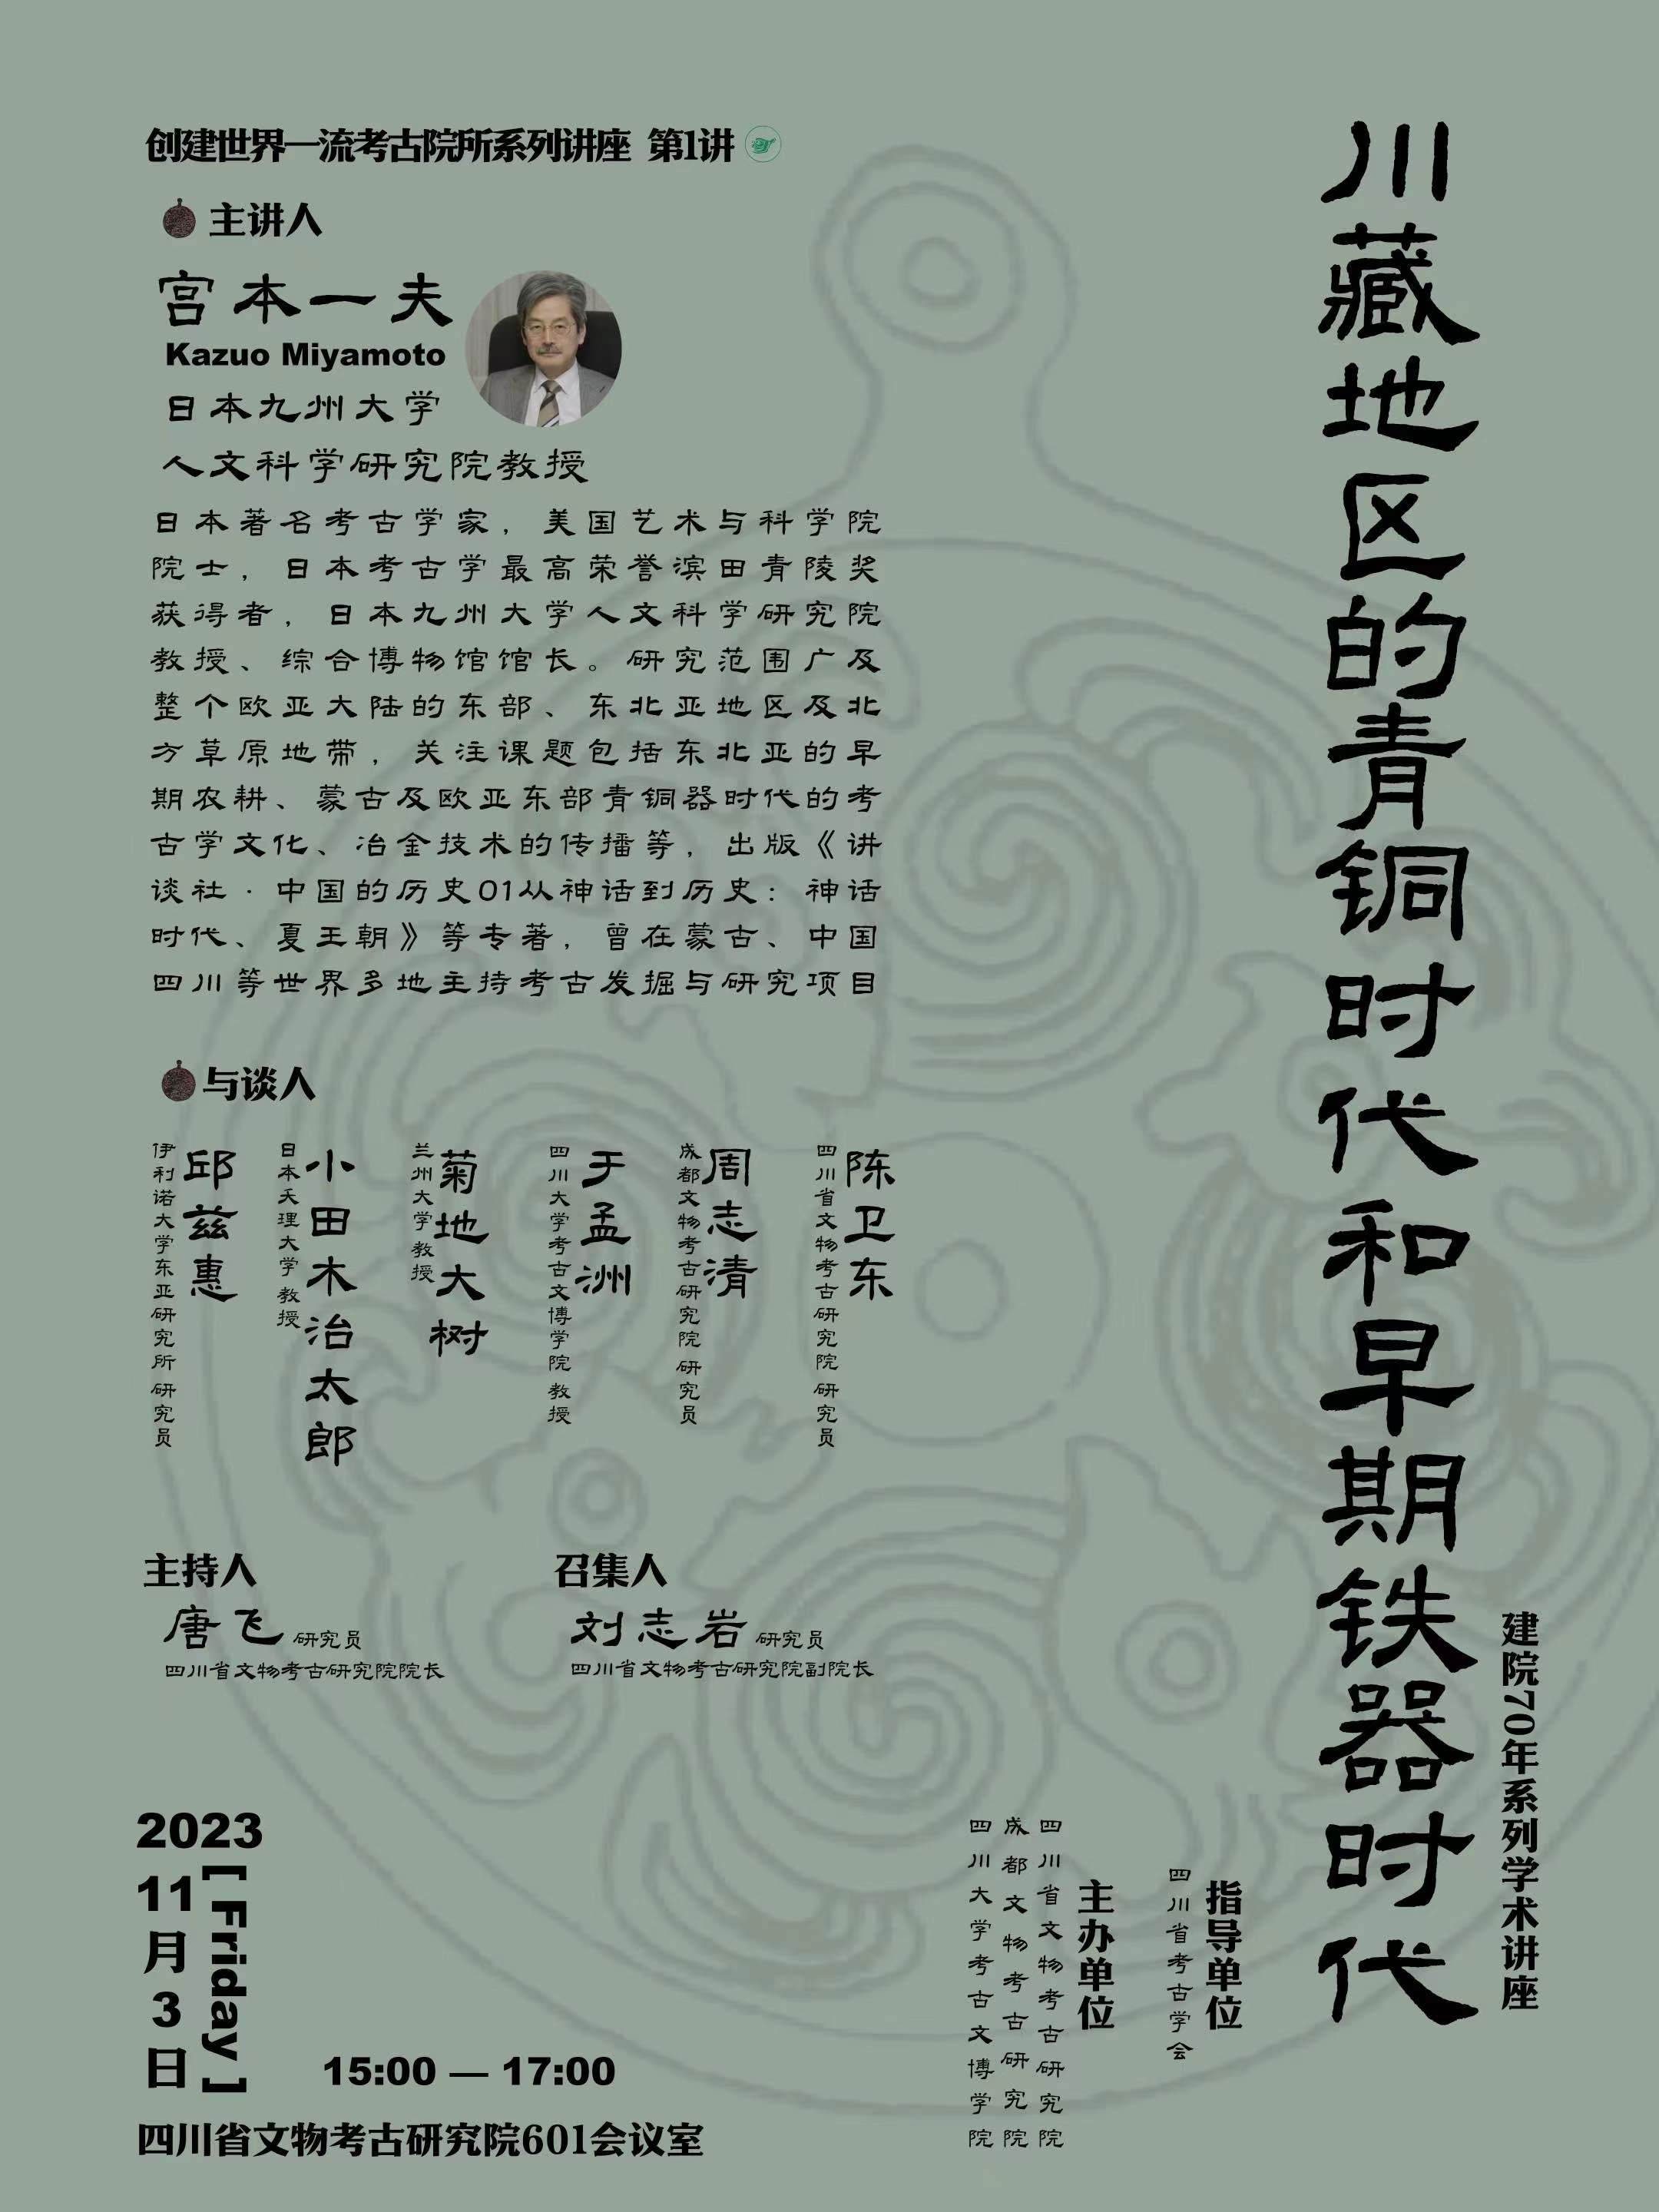 创建世界一流考古院所系列讲座 第1讲
主讲人
宫本一夫
Kazuo Miyamoto
日本九州大学
人文科学研究院教授
日本著名考古学家，美国艺术与科学院
院士，日本考古学最高荣誉滨田青陵奖
获得者，日本九州大学人文科学研究院
教授、综合博物馆馆长。研究范围广及
整个欧亚大陆的东部、东北亚地区及北
方草原地带，关注课题包括东北亚的早
期农耕、蒙古及欧亚东部青铜器时代的考
古学文化、冶金技术的传播等，出版《讲
谈社·中国的历史01从神话到历史：神话
时代、夏王朝》等专著，曾在蒙古、中国
四川等世界多地主持考古发掘与研究项目
与谈人
陈卫东
四川省文物考古研究院 研究员
周志清
成都文物考古研究院 研究员
于孟洲
四川大学考古文博学院 教授
菊地大树
兰州大学 教授
小田木治太郎
日本天理大学 教授
邱兹惠
伊利诺大学东亚研究所 研究员
主持人
唐飞 研究员
四川省文物考古研究院院长
召集人
刘志岩 研究员
四川省文物考古研究院副院长
2023
11
月
3
日
[Friday]
15:00 — 17:00
四川省文物考古研究院601会议室
建院70年系列学术讲座
川藏地区的青铜时代和早期铁器时代
指导单位
四川省考古学会
主办单位
四川省文物考古研究院
成都文物考古研究院
四川大学考古文博学院